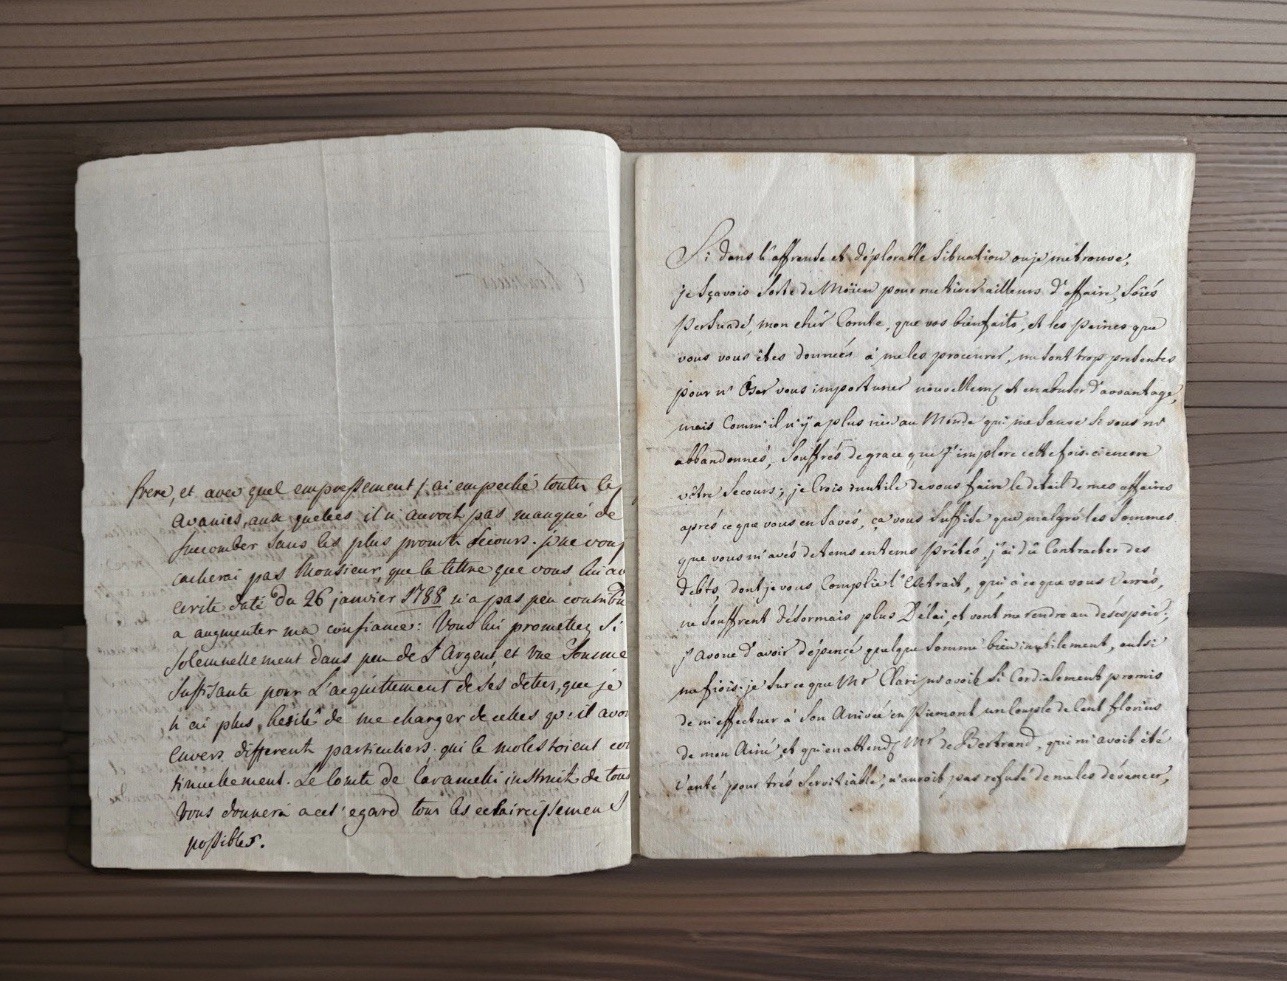 frere, et avec quel empressement j'ai empeché toutes les
avanies, aux quelles il n'auroit pas manqué de
succomber sans les plus promts secours. je ne vous
cacherai pas Monsieur, que la lettre que vous lui av
ecrite daté du 26 janvier 1788 n'a pas peu contribu
a augmenter ma confiance: Vous lui promettez si
solemnellement dans peu de l'argent et une somme
suffisante pour l'acquittement de ses dettes, que je
n'ai plus hesité de me charger de celles qu'il avoi
envers differents particuliers qui le molestoient con
tinuellement. Le Comte de Caramelli instruit de tous
vous donnera a cet' egard tous les eclaircissemens
possibles.
Si dans l'affreuse et déplorable situation ou je me trouve,
je sçavois sorte de Moïen pour me tirer ailleurs d'affaire, soiés
persuadé, mon cher Comte, que vos bienfaits, et les peines que
vous vous étes donneés à me les procurer, me sont trop presentes
pour n'oser vous importuner nouvellemt et en abuser d'avantage,
mais comm'il n'y a plus rien au Monde qui me sauve si vous m'
abbandonnés, souffrés de grace que j'implore cette fois-ci encore
vôtre secours; je crois inutile de vous faire le détail de mes affaires
aprés ce que vous en savés, ça vous suffise que malgré les sommes
que vous m'avés de tems en tems prêtés j'ai dû contracter des
debts, dont je vous Complie l'Extrait, qui, à ce que vous verrés,
ne souffrent désormais plus Délai, et vont me rendre au desespoir;
j'avoue d'avoir dépencé quelque somme bien inutilement, aussi
me fiois-je sur ce que Mr Clari m'avoit si cordialement promis
de m'effectuer à son Arivée en Piemont un couple de Cent florins
de mon Ainé, et qu'en attendt Mr de Bertrand, qui m'avoit été
vanté pour trés servitiable, n'auroit pas refusé de me les dévancer,